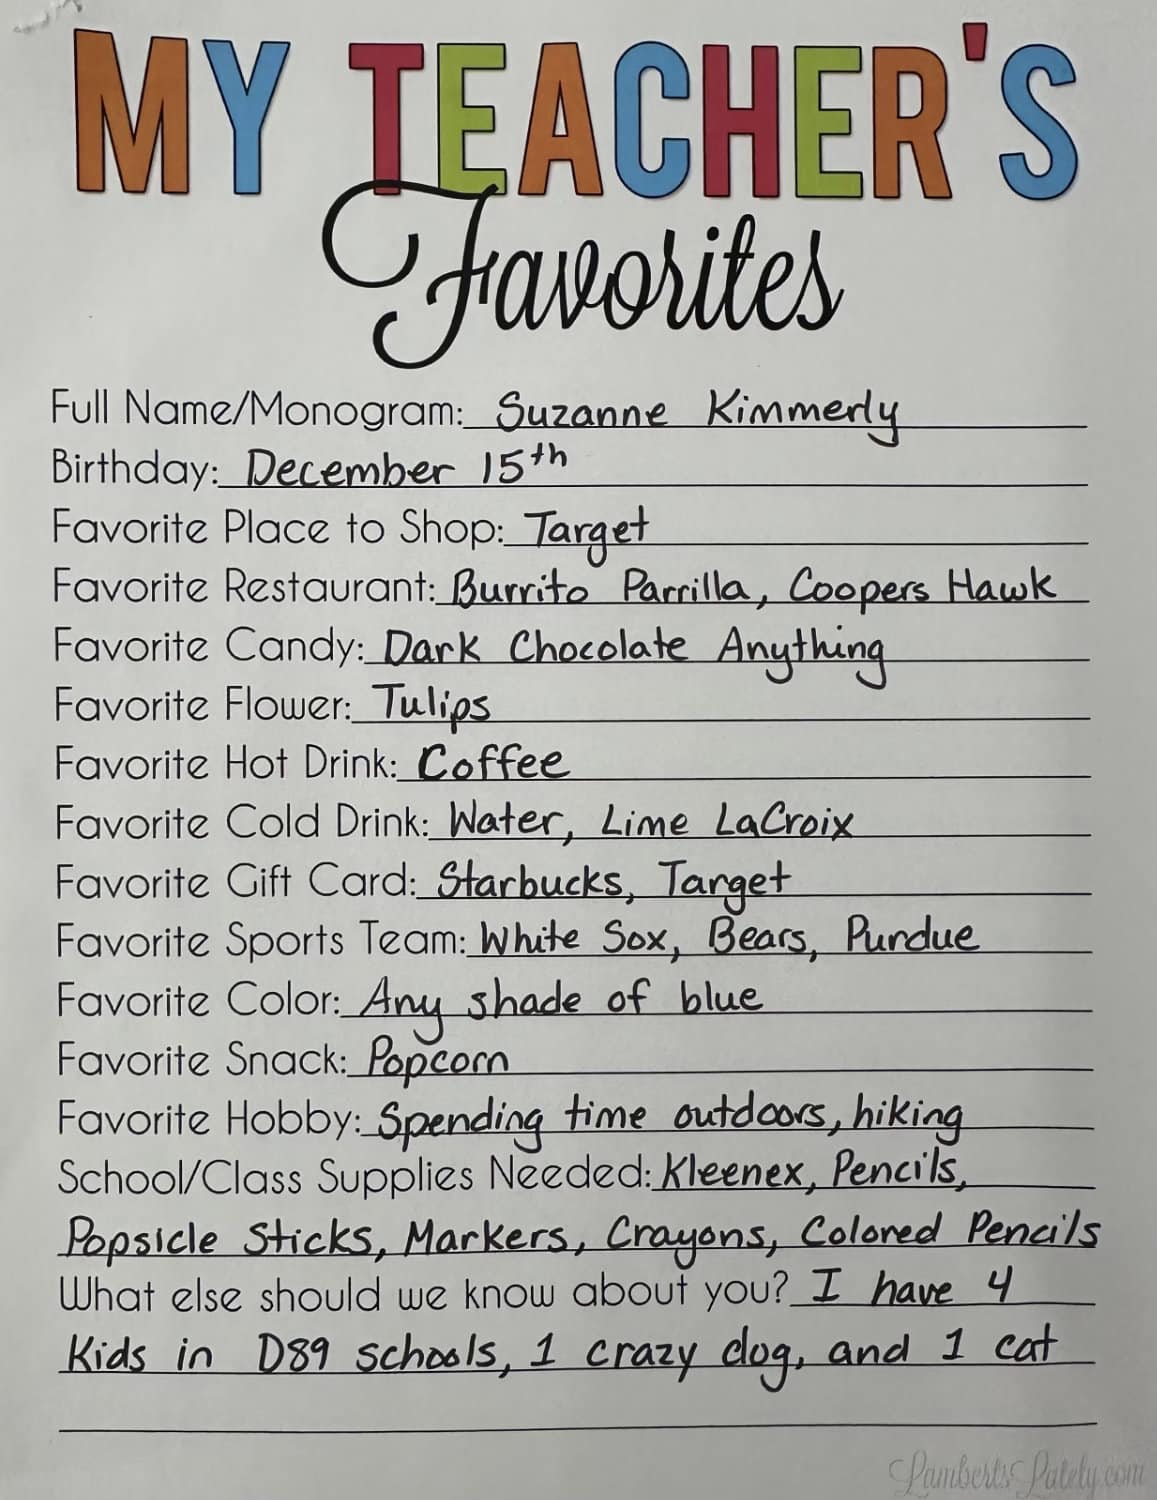 MY TEACHER'S
Favorites
Full Name/Monogram: Suzanne Kimmerly
Birthday: December 15th
Favorite Place to Shop: Target
Favorite Restaurant: Burrito Parrilla, Coopers Hawk
Favorite Candy: Dark Chocolate Anything
Favorite Flower: Tulips
Favorite Hot Drink: Coffee
Favorite Cold Drink: Water, Lime LaCroix
Favorite Gift Card: Starbucks, Target
Favorite Sports Team: White Sox, Bears, Purdue
Favorite Color: Any shade of blue
Favorite Snack: Popcorn
Favorite Hobby: Spending time outdoors, hiking
School/Class Supplies Needed: Kleenex, Pencils,
Popsicle Sticks, Markers, Crayons, Colored Pencils
What else should we know about you? I have 4
Kids in D89 schools, 1 crazy dog, and 1 cat
LambertsLately.com